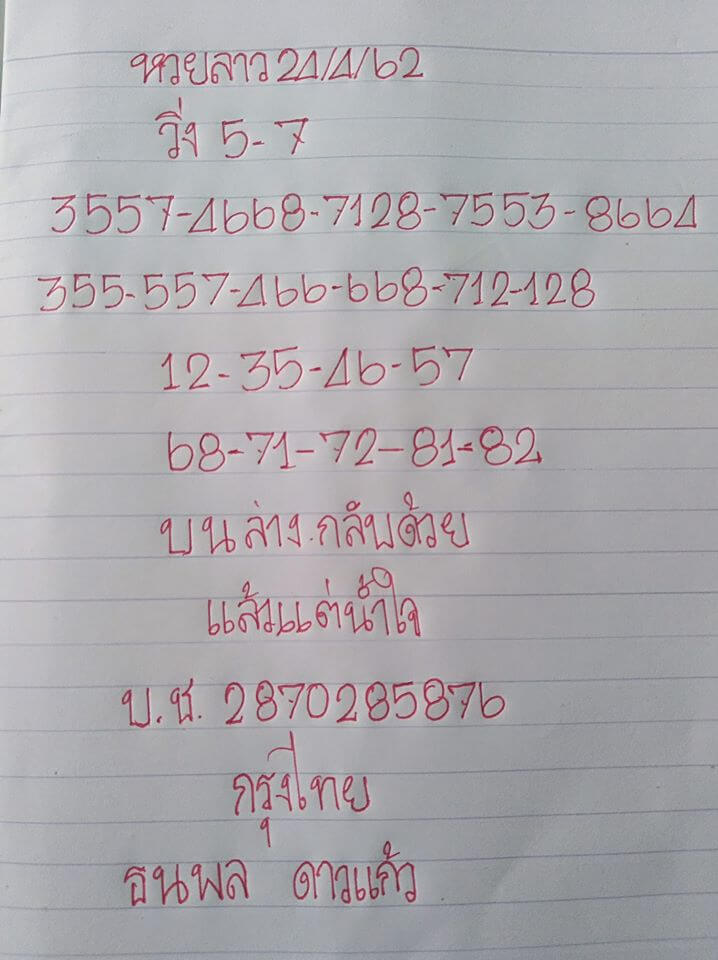 หวยลาว 24/4/62
วิ่ง 5-7
3557-4668-7128-7553-8664
355-557-466-668-712-128
12-35-46-57
68-71-72-81-82
บนล่าง.กลับด้วย
แล้วแต่น้ำใจ
บ.ช. 2870285876
กรุงไทย
ธนพล ดาวแก้ว